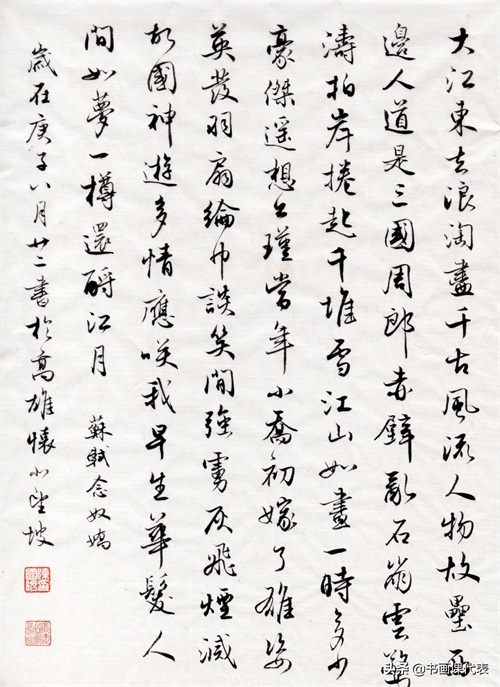 大江東去浪淘盡千古風流人物故壘西
邊人道是三國周郎赤壁亂石崩雲驚
濤拍岸捲起千堆雪江山如畫一時多少
豪傑遙想公瑾當年小喬初嫁了雄姿
英發羽扇綸巾談笑間強虜灰飛煙滅
故國神遊多情應咲我早生華髮人
間如夢一樽還酹江月 蘇軾念奴嬌
歲在庚子八月廿二書於高雄懷小坡
头条 @书画课代表